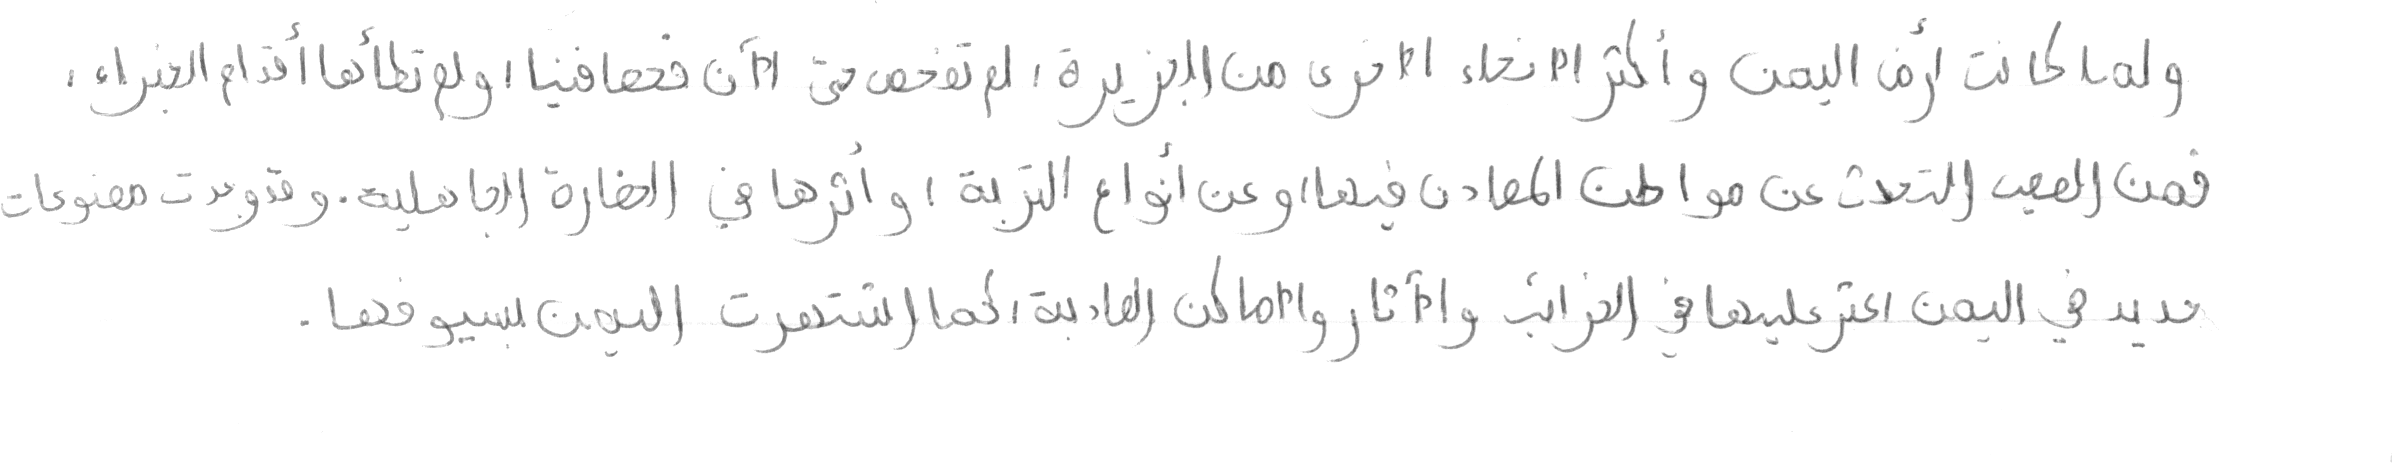 ولما كانت أرض اليمن وأكثر الانحاء الاخرى من الجزيرة، لم تفحص حتى الآن فحصا فنيا، ولم تطأها أقدام الخبراء،
فمن الصعب التحدث عن مواطن المعادن فيها، وعن أنواع التربة، وأثرها في الحضارة الجاهلية. وقد وجدت مصنوعات
حديد في اليمن اعثر عليها في الخرائب والآثار والاماكن العادية، كما اشتهرت اليمن بسيوفها.